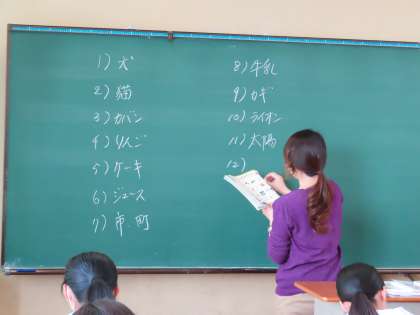 1) 犬
2) 猫
3) カバン
4) りんご
5) ケーキ
6) ジュース
7) 市、町
8) 牛乳
9) カギ
10) ライオン
11) 太陽
12)